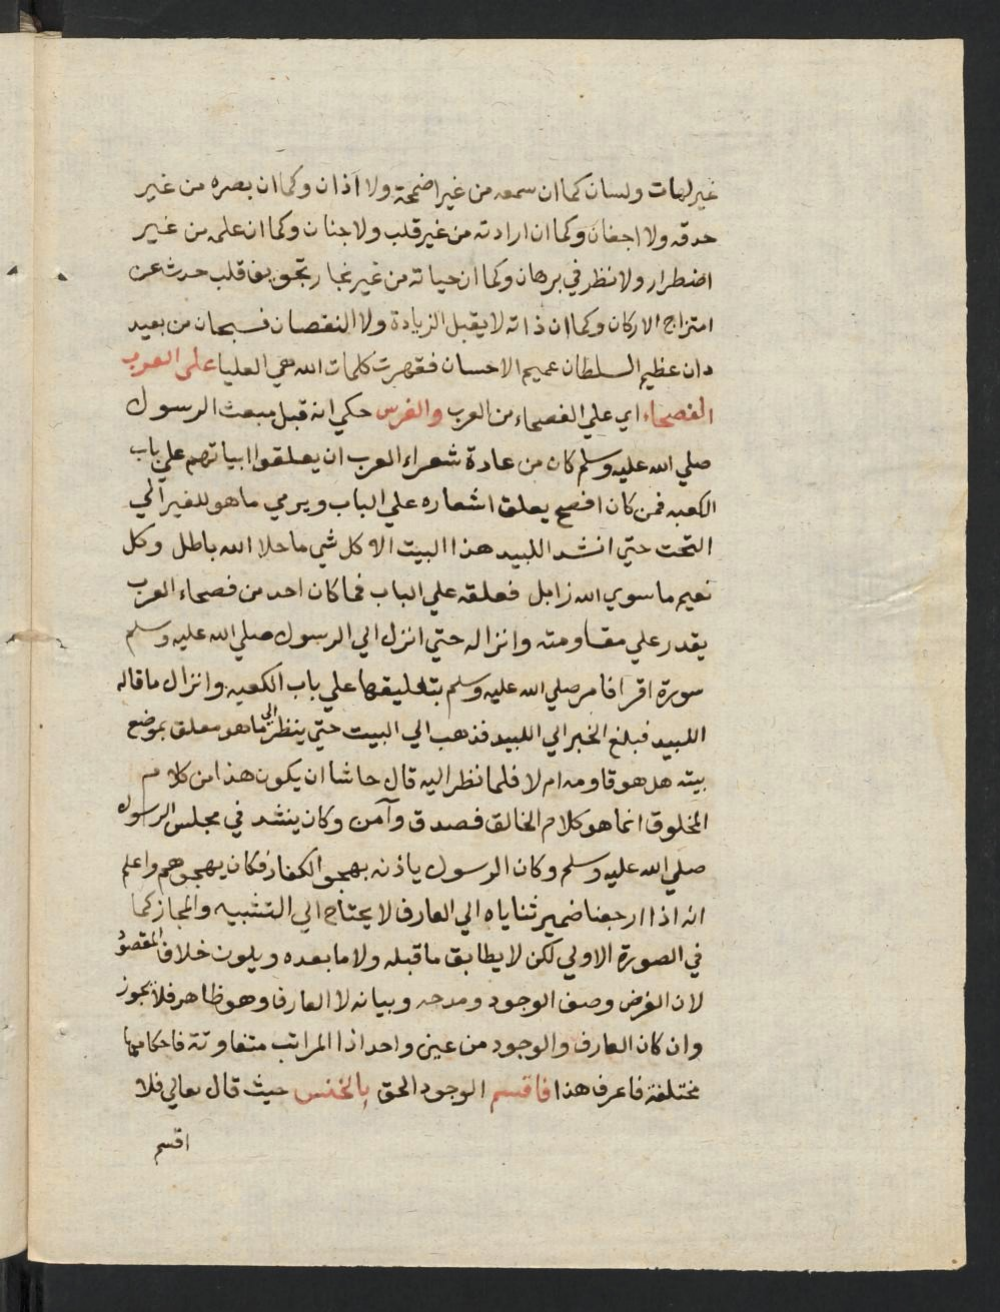 غير لهات ولسان كما ان سمعه من غير اضمخة ولا آذان وكما ان بصره من غير
حدقه ولا اجفان وكما ان ارادته من غير قلب ولا جنان وكما ان علمه من غير
اضطرار ولا نظر في برهان وكما ان حياته من غير بخار تجويف قلب حدث عن
امتزاج الاركان وكما ان ذاته لا يقبل الزيادة ولا النقصان فسبحان من بعيد
دان عظيم السلطان عميم الاحسان فقهرت كلمات الله هي العليا على العرب
الفصحاء اي علي الفصحاء من العرب والفرس حكي انه قبل مبعث الرسول
صلي الله عليه وسلم كان من عادة شعراء العرب ان يعلقوا ابياتهم علي باب
الكعبه فمن كان افصح يعلق اشعاره علي الباب ويرمي ما هو للغير الي
التحت حتي انشد اللبيد هذا البيت الا كل شي ما خلا الله باطل وكل
نعيم ما سوي الله زايل فعلقه علي الباب فما كان احد من فصحاء العرب
يقدر علي مقاومته وانزاله حتي انزل الي الرسول صلي الله عليه وسلم
سورة اقرا فامر صلي الله عليه وسلم بتعليقها علي باب الكعبه وانزال ما قاله
اللبيد فبلغ الخبر الي اللبيد فذهب الي البيت حتي ينظر الي ما هو معلق بموضع
بيته هل هو قاومه ام لا فلما نظر اليه قال حاشا ان يكون هذا من كلام
المخلوق انما هو كلام الخالق فصدق وآمن وكان ينشد في مجلس الرسول
صلي الله عليه وسلم وكان الرسول ياذنه بهجو الكفار فكان يهجوهم واعلم
انه اذا ارجعنا ضمير ثناياه الي العارف لا يحتاج الي التشبيه والمجاز كما
في الصورة الاولي لكن لا يطابق ما قبله ولا ما بعده ويكون خلاف المقصود
لان الغرض وصف الوجود ومدحه وبيانه لا العارف وهو ظاهر فلا يجوز
وان كان العارف والوجود من عين واحد اذ المراتب متفاوتة فاحكامها
مختلفة فاعرف هذا فاقسم الوجود الحق بالخنس حيث قال تعالي فلا
اقسم